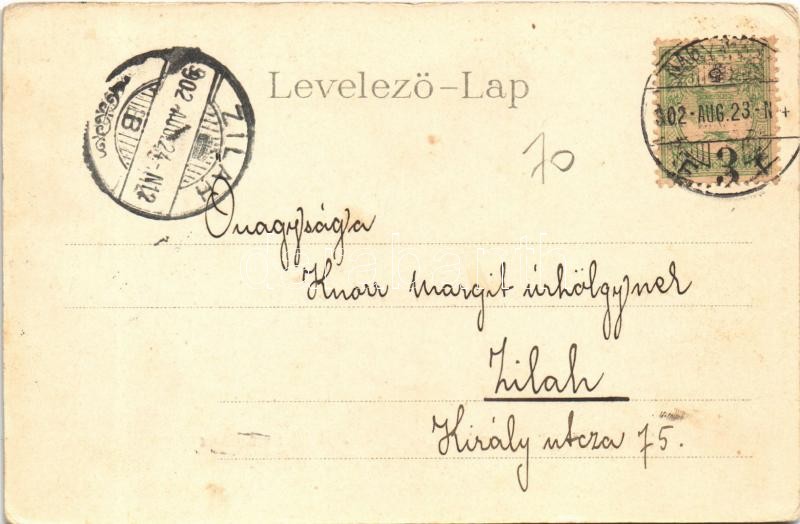 Levelező-Lap
ZILAH
902-AUG.24-N12
B
902-AUG.23-N
3
70
Őnagysága
Knorr Margit úrhölgynek
Zilah
Király utcza 75.